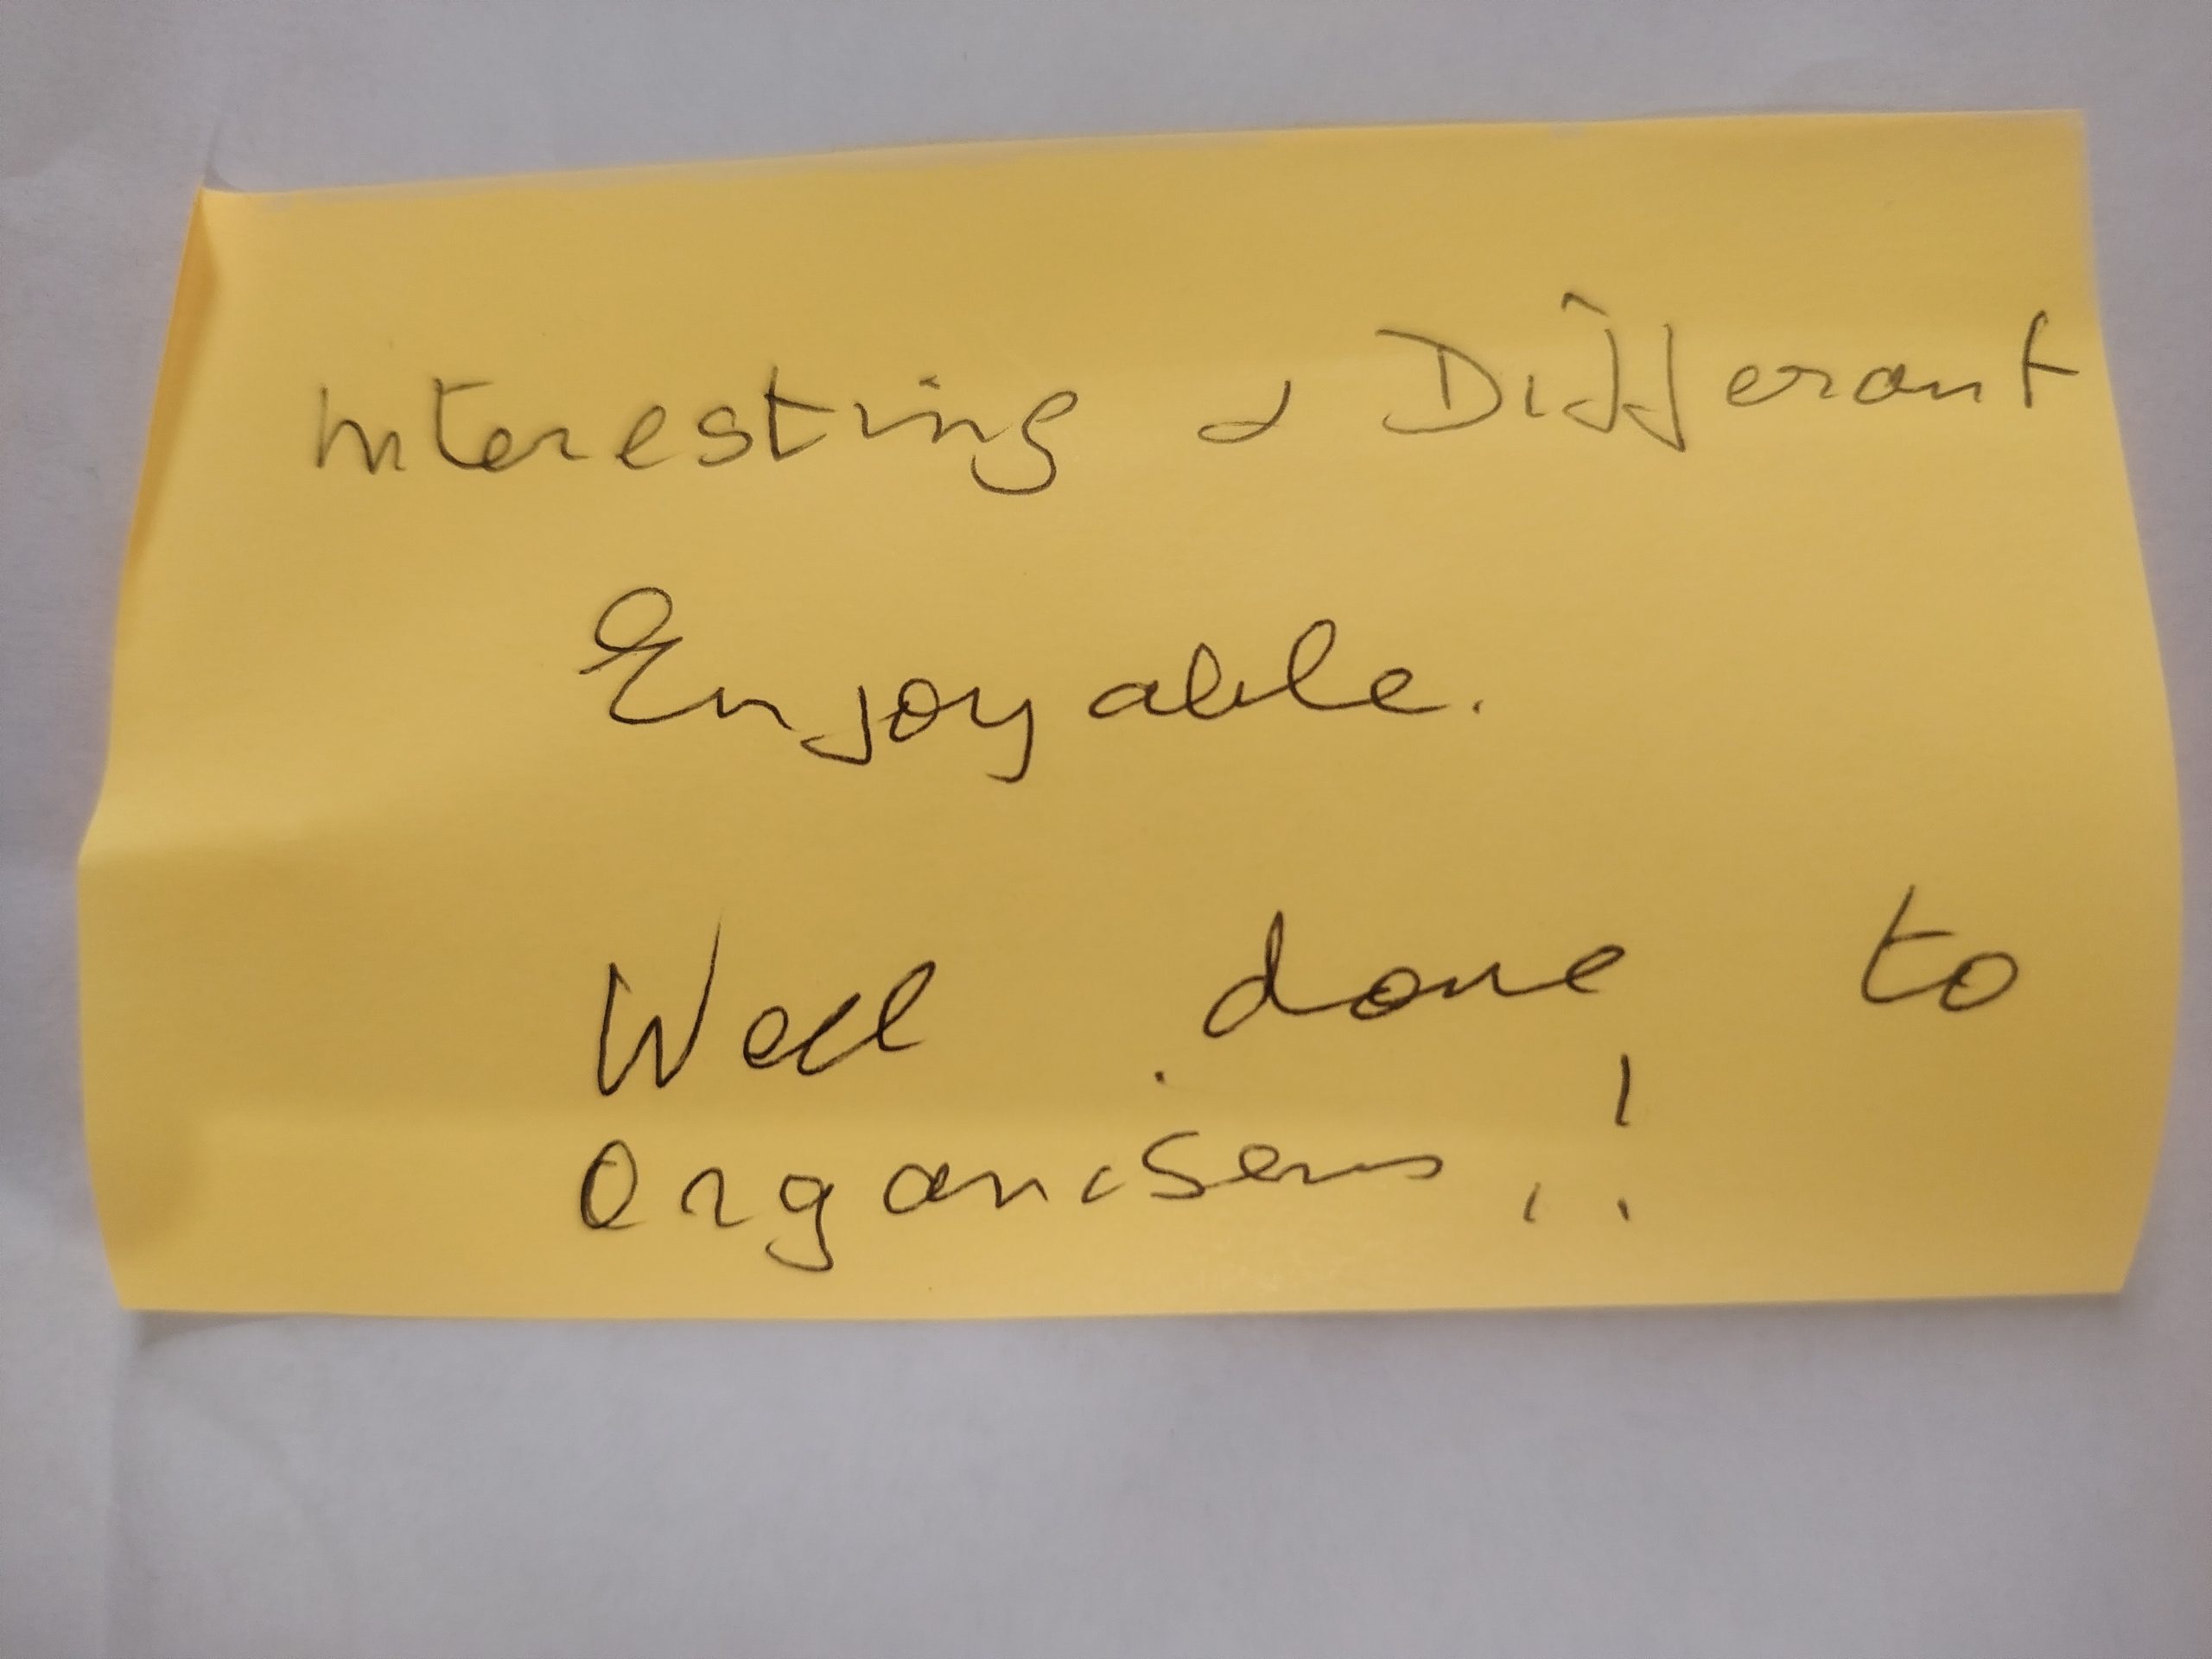 Interesting & Different
Enjoyable.
Well done to
Organisers!!